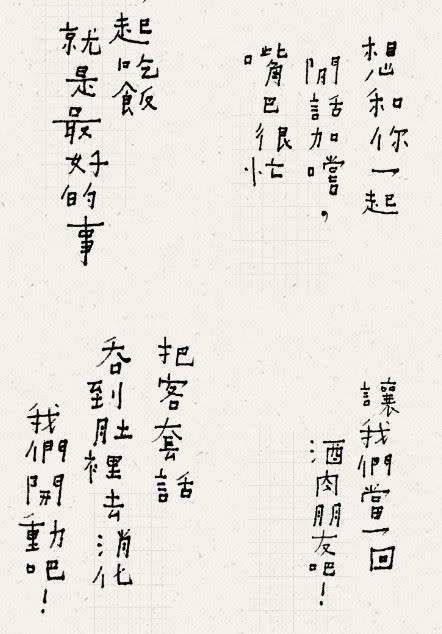 想和你一起
閒話加嚐，
嘴巴很忙
起吃飯
就是最好的事
讓我們當一回
酒肉朋友吧！
把客套話
吞到肚裡去消化
我們開動吧！